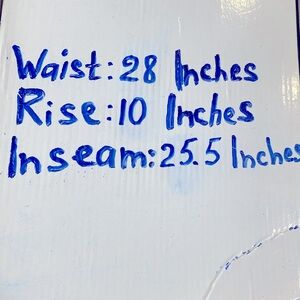 Waist: 28 Inches
Rise: 10 Inches
Inseam: 25.5 Inches